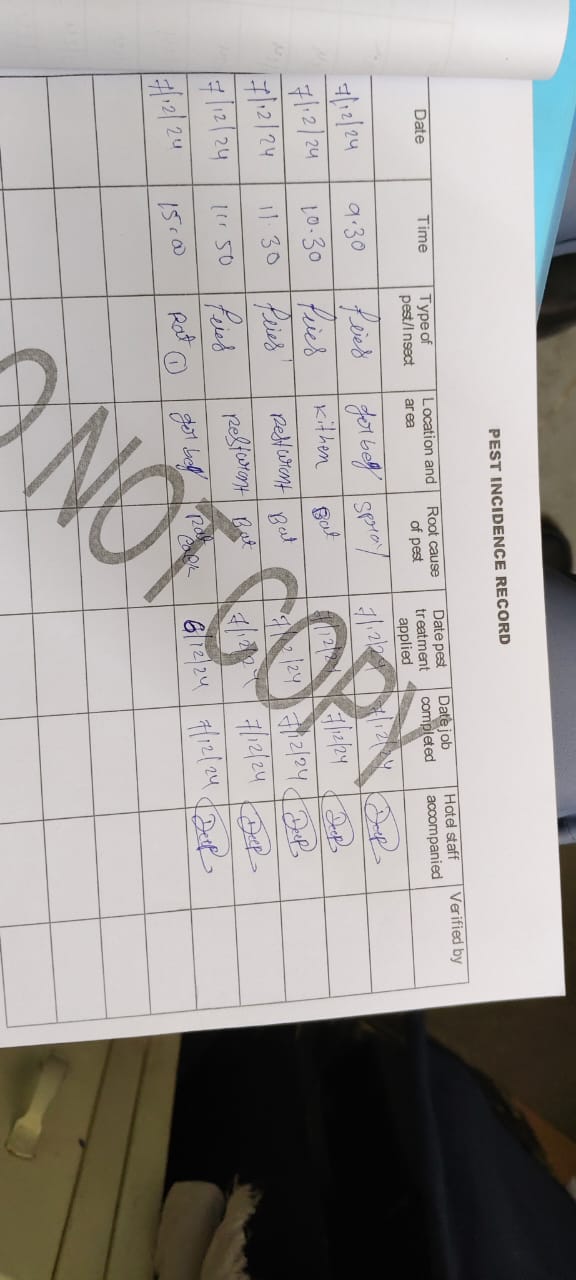 PEST INCIDENCE RECORD
Date Time Type of pest/Insect Location and area Root cause of pest Date pest treatment applied Date job completed Hotel staff accompanied Verified by
7/12/24 9.30 flies garbeg spray 7/12/24 7/12/24 Deep
7/12/24 10.30 flies kithen Bat 7/12/24 7/12/24 Deep
7/12/24 11.30 flies Resturont Bat 7/12/24 7/12/24 Deep
7/12/24 11.50 flies Resturont Bat 7/12/24 7/12/24 Deep
7/12/24 15.00 Rat 1 garbeg Rat 6/12/24 7/12/24 Deep
DO NOT COPY